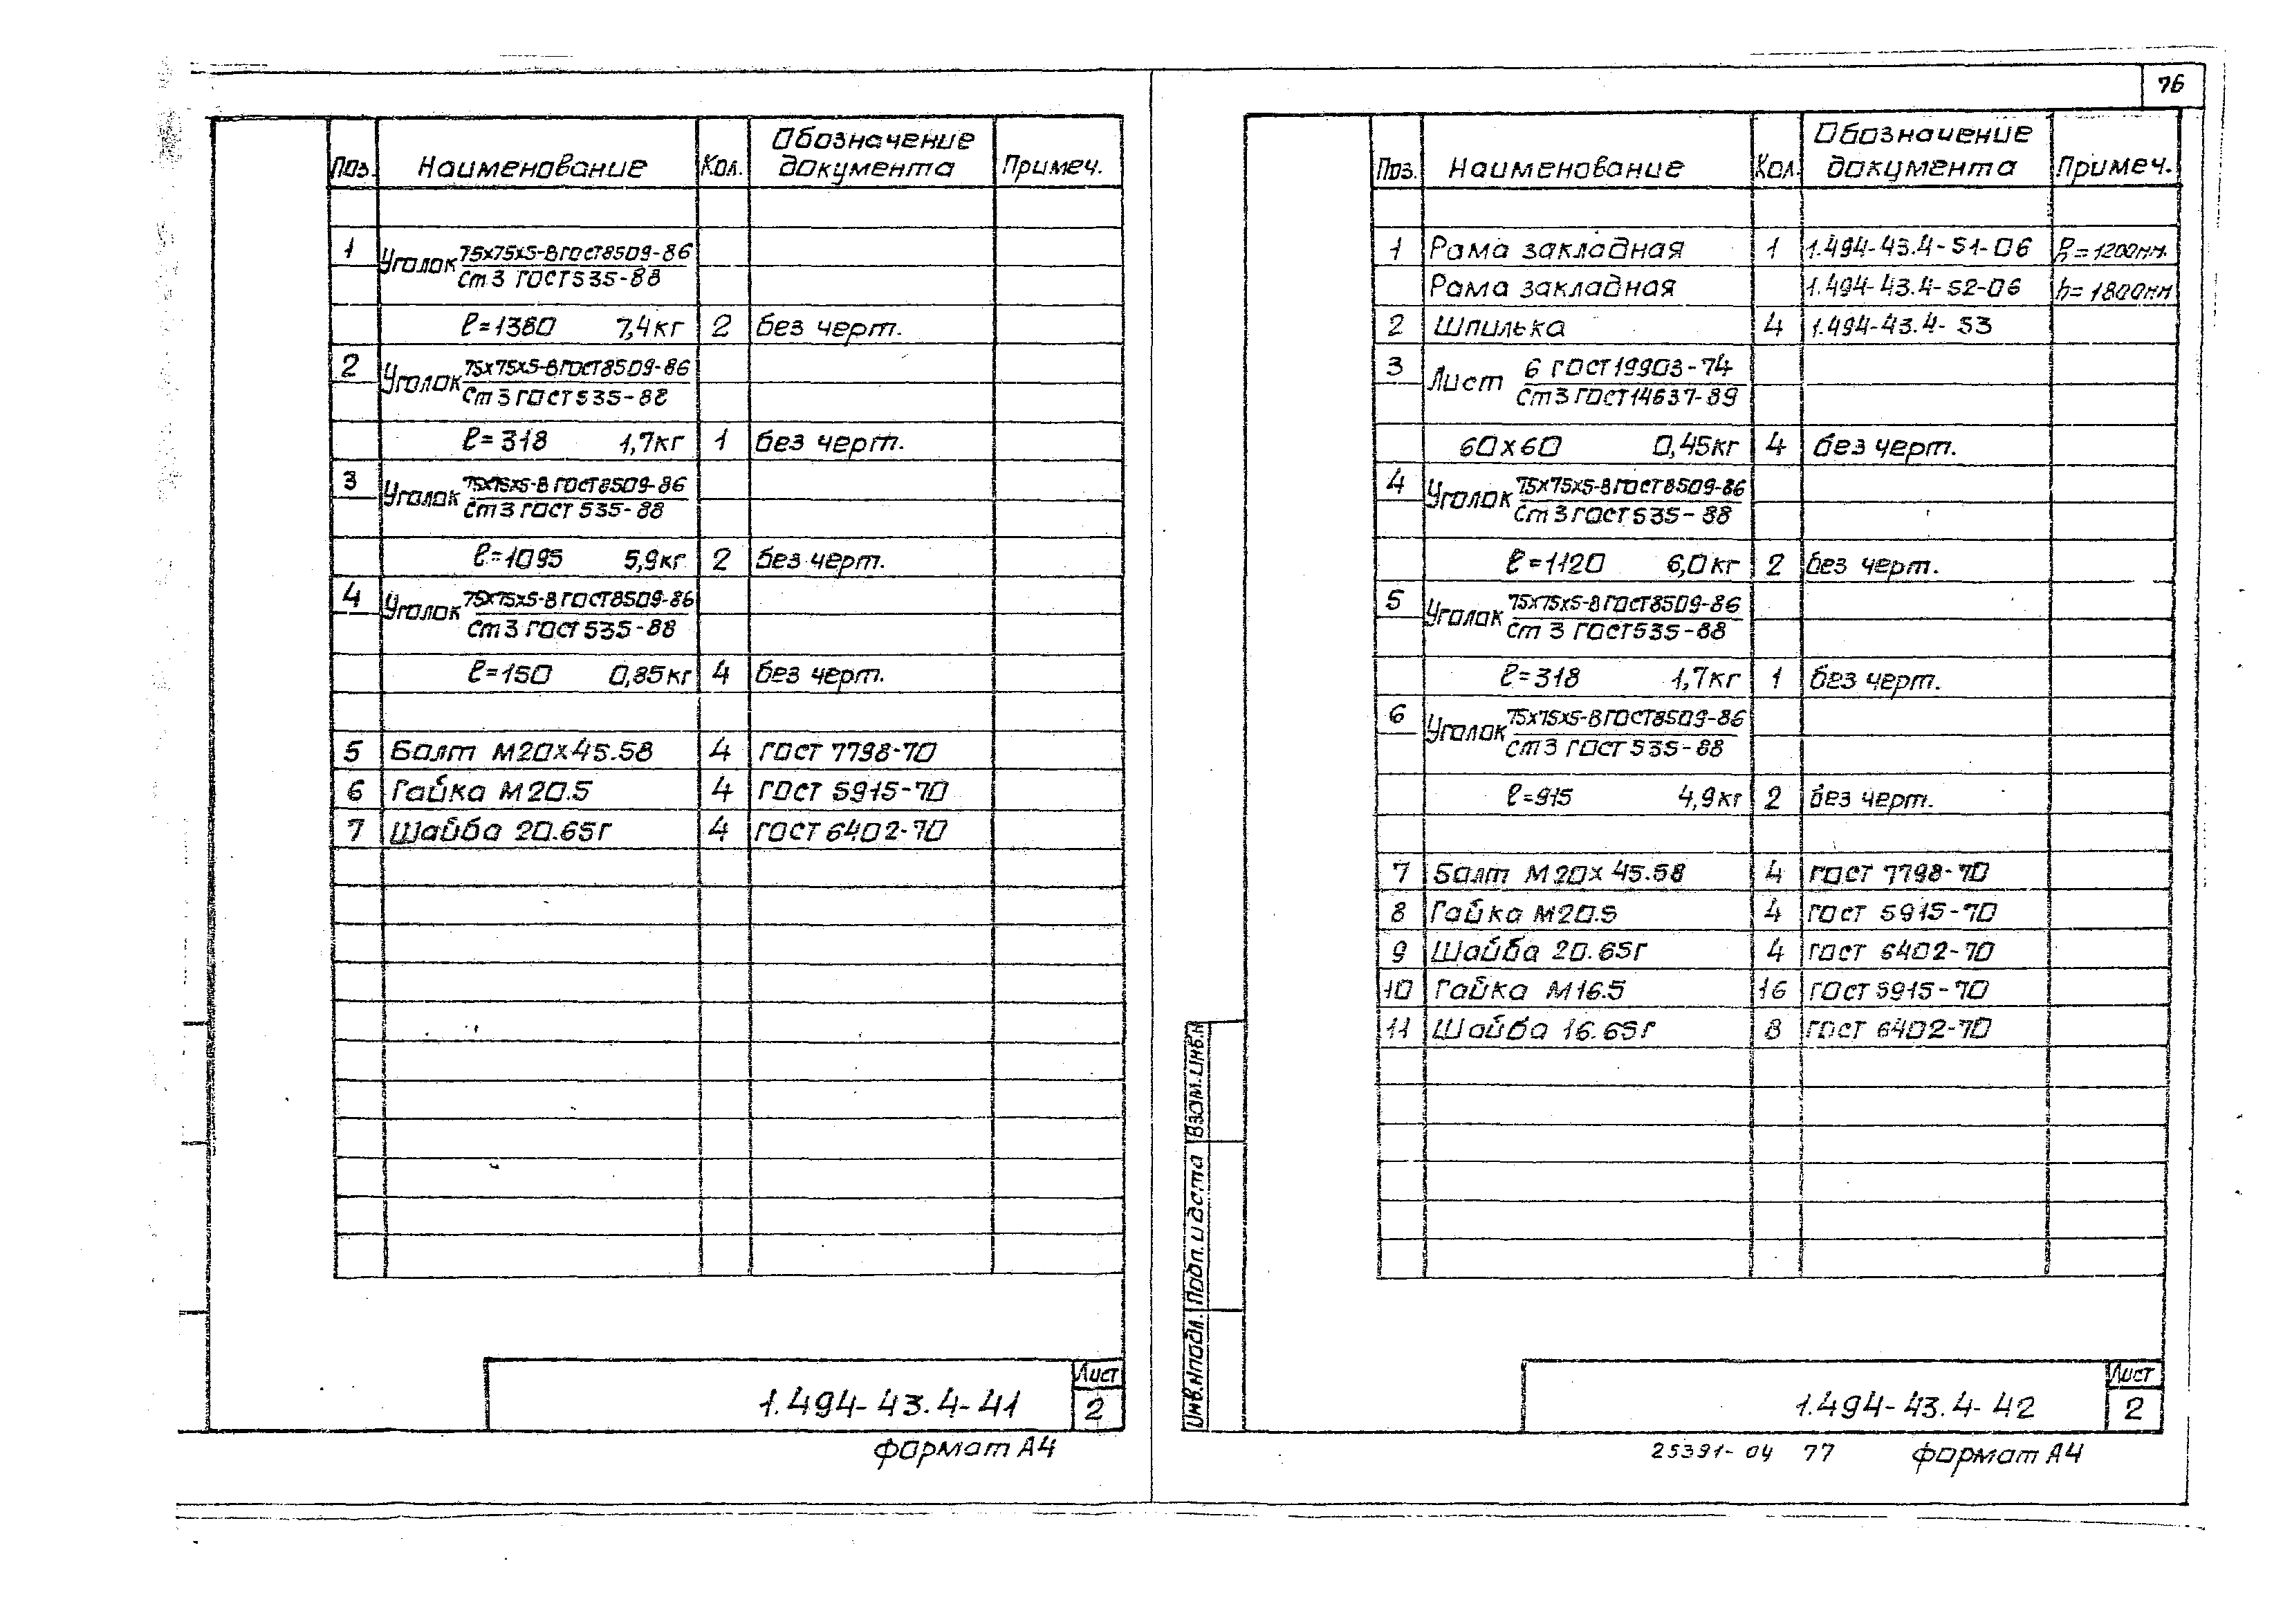 76
Поз. Наименование Кол. Обозначение документа Примеч.
1 Уголок 75х75х5-В ГОСТ 8509-86
Ст3 ГОСТ 535-88
ℓ=1360 7,4кг 2 без черт.
2 Уголок 75х75х5-В ГОСТ 8509-86
Ст3 ГОСТ 535-88
ℓ=318 1,7кг 1 без черт.
3 Уголок 75х75х5-В ГОСТ 8509-86
Ст3 ГОСТ 535-88
ℓ=1095 5,9кг 2 без черт.
4 Уголок 75х75х5-В ГОСТ 8509-86
Ст3 ГОСТ 535-88
ℓ=150 0,85кг 4 без черт.
5 Болт М20х45.58 4 ГОСТ 7798-70
6 Гайка М20.5 4 ГОСТ 5915-70
7 Шайба 20.65Г 4 ГОСТ 6402-70
1.494-43.4-41
Лист
2
формат А4
Поз. Наименование Кол. Обозначение документа Примеч.
1 Рама закладная 1 1.494-43.4-51-06 h=1200мм.
Рама закладная 1.494-43.4-52-06 h=1800мм
2 Шпилька 4 1.494-43.4-53
3 Лист 6 ГОСТ 19903-74
Ст3 ГОСТ 14637-89
60х60 0,45кг 4 без черт.
4 Уголок 75х75х5-В ГОСТ 8509-86
Ст3 ГОСТ 535-88
ℓ=1120 6,0кг 2 без черт.
5 Уголок 75х75х5-В ГОСТ 8509-86
Ст3 ГОСТ 535-88
ℓ=318 1,7кг 1 без черт.
6 Уголок 75х75х5-В ГОСТ 8509-86
Ст3 ГОСТ 535-88
ℓ=915 4,9кг 2 без черт.
7 Болт М20х45.58 4 ГОСТ 7798-70
8 Гайка М20.5 4 ГОСТ 5915-70
9 Шайба 20.65Г 4 ГОСТ 6402-70
10 Гайка М16.5 16 ГОСТ 5915-70
11 Шайба 16.65Г 8 ГОСТ 6402-70
Взам.инв.N
Подп. и дата
Инв.Nподл.
1.494-43.4-42
Лист
2
25391-04 77 формат А4